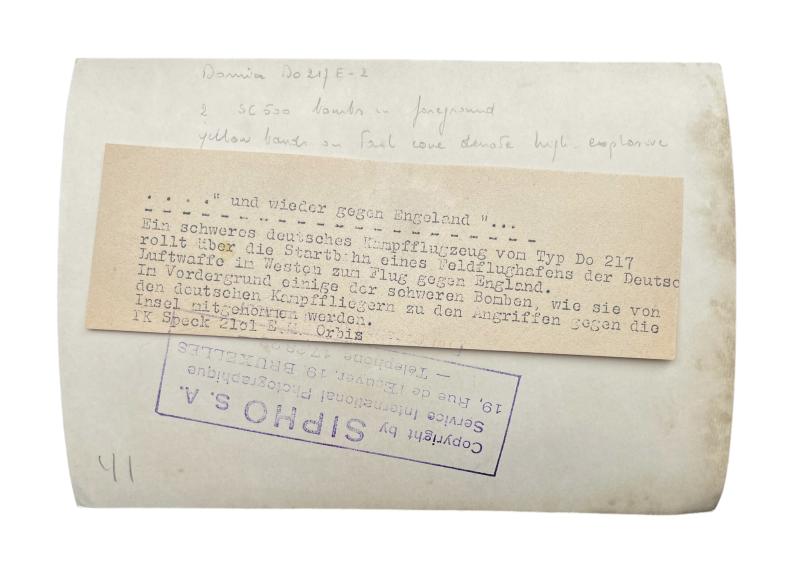 Dornier Do 217 E-2
2 SC 500 bombs in foreground
yellow bands on tail cone denote high explosive
. . . ." und wieder gegen Engeland "...
Ein schweres deutsches Kampfflugzeug vom Typ Do 217
rollt über die Startbahn eines Feldflughafens der Deutsc
Luftwaffe im Westen zum Flug gegen England.
Im Vordergrund einige der schweren Bomben, wie sie von
den deutschen Kampffliegern zu den Angriffen gegen die
Insel mitgenommen werden.
PK Speck 2101 E.M. Orbis
Copyright by SIPHO S.A.
Service International Photographique
19, Rue de l'Ecuyer, 19, BRUXELLES
— Telephone
41